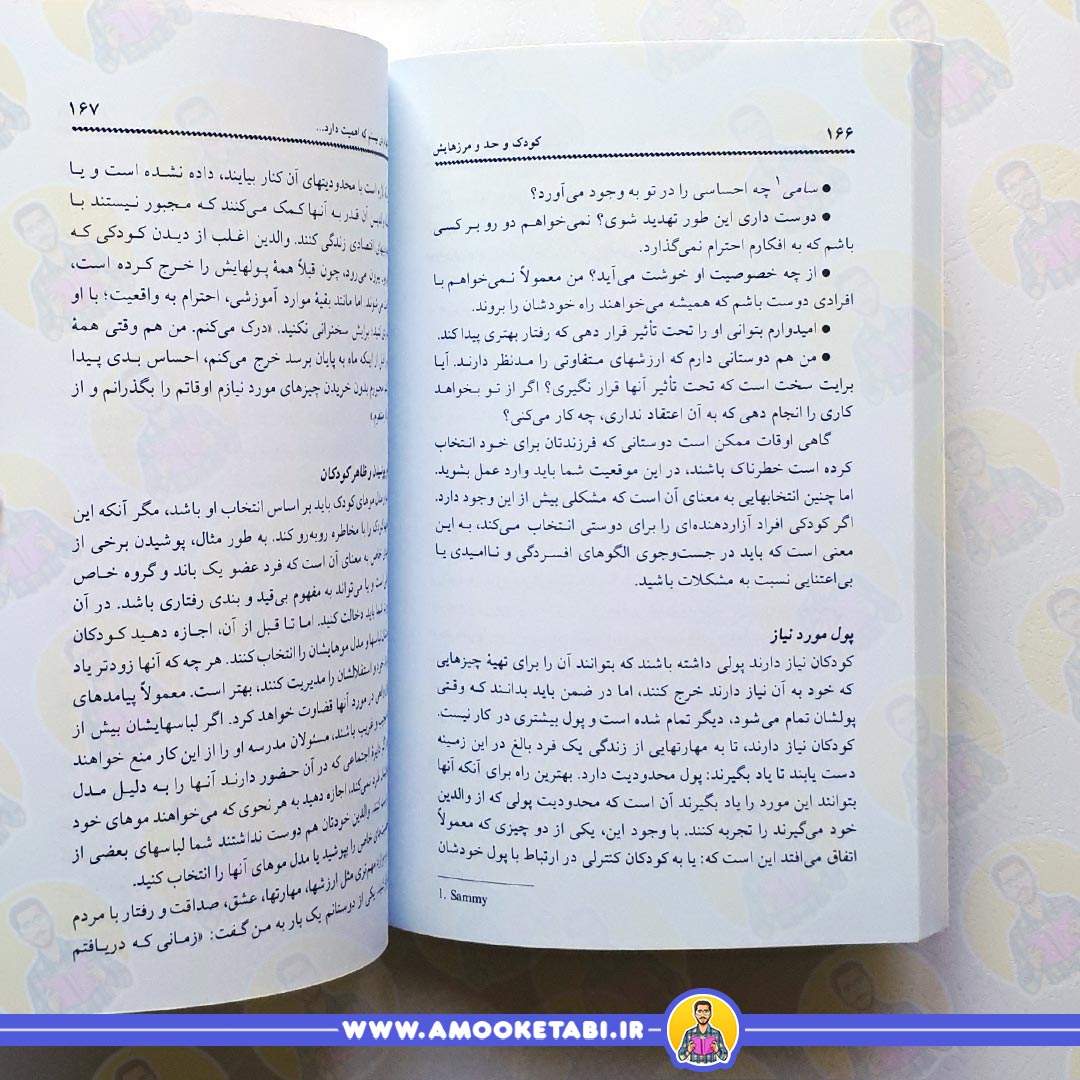 ۱۶۶
کودک و حد و مرزهایش
● سامی۱ چه احساسی را در تو به وجود می‌آورد؟
● دوست داری این طور تهدید شوی؟ نمی‌خواهم دو رو بر کسی
باشم که به افکارم احترام نمی‌گذارد.
● از چه خصوصیت او خوشت می‌آید؟ من معمولاً نمی‌خواهم با
افرادی دوست باشم که همیشه می‌خواهند راه خودشان را بروند.
● امیدوارم بتوانی او را تحت تأثیر قرار دهی که رفتار بهتری پیدا کند.
● من هم دوستانی دارم که ارزشهای متفاوتی را مدنظر دارند. آیا
برایت سخت است که تحت تأثیر آنها قرار نگیری؟ اگر از تو بخواهد
کاری را انجام دهی که به آن اعتقاد نداری، چه کار می‌کنی؟
گاهی اوقات ممکن است دوستانی که فرزندتان برای خود انتخاب
کرده است خطرناک باشند، در این موقعیت شما باید وارد عمل بشوید.
اما چنین انتخابهایی به معنای آن است که مشکلی بیش از این وجود دارد.
اگر کودکی افراد آزاردهنده‌ای را برای دوستی انتخاب می‌کند، به این
معنی است که باید در جست‌وجوی الگوهای افسردگی و ناامیدی یا
بی‌اعتنایی نسبت به مشکلات باشید.
پول مورد نیاز
کودکان نیاز دارند پولی داشته باشند که بتوانند آن را برای تهیۀ چیزهایی
که خود به آن نیاز دارند خرج کنند، اما در ضمن باید بدانند که وقتی
پولشان تمام می‌شود، دیگر تمام شده است و پول بیشتری در کار نیست.
کودکان نیاز دارند، تا به مهارتهایی از زندگی یک فرد بالغ در این زمینه
دست یابند تا یاد بگیرند: پول محدودیت دارد. بهترین راه برای آنکه آنها
بتوانند این مورد را یاد بگیرند آن است که محدودیت پولی که از والدین
خود می‌گیرند را تجربه کنند. با وجود این، یکی از دو چیزی که معمولاً
اتفاق می‌افتد این است که: یا به کودکان کنترلی در ارتباط با پول خودشان
1. Sammy
۱۶۷
که اهمیت دارد...
است با محدودیتهای آن کنار بیایند، داده نشده است و یا
آن قدر به آنها کمک می‌کنند که مجبور نیستند با
اقتصادی زندگی کنند. والدین اغلب از دیدن کودکی که
بیرون می‌رود، چون قبلاً همۀ پولهایش را خرج کرده است،
اما مانند بقیۀ موارد آموزشی، احترام به واقعیت؛ با او
برایش سخنرانی نکنید. «درک می‌کنم. من هم وقتی همۀ
از اینکه ماه به پایان برسد خرج می‌کنم، احساس بدی پیدا
بدون خریدن چیزهای مورد نیازم اوقاتم را بگذرانم و از
ظاهر کودکان
موهای کودک باید بر اساس انتخاب او باشد، مگر آنکه این
را با مخاطره روبه‌رو کند. به طور مثال، پوشیدن برخی از
خاص به معنای آن است که فرد عضو یک باند و گروه خاص
است و یا می‌تواند به مفهوم بی‌قید و بندی رفتاری باشد. در آن
شما باید دخالت کنید. اما تا قبل از آن، اجازه دهید کودکان
لباسها و مدل موهایشان را انتخاب کنند. هر چه که آنها زودتر یاد
و استقلالشان را مدیریت کنند، بهتر است. معمولاً پیامدهای
در مورد آنها قضاوت خواهد کرد. اگر لباسهایشان بیش از
غریب باشند، مسئولان مدرسه او را از این کار منع خواهند
اجتماعی که در آن حضور دارند آنها را به دلیل مدل
نمی‌کند، اجازه دهید به هر نحوی که می‌خواهند موهای خود
والدین خودتان هم دوست نداشتند شما لباسهای بعضی از
خاص را بپوشید یا مدل موهای آنها را انتخاب کنید.
مهم‌تری مثل ارزشها، مهارتها، عشق، صداقت و رفتار با مردم
یکی از دوستانم یک بار به من گفت: «زمانی که دریافتم
WWW.AMOOKETABI.IR